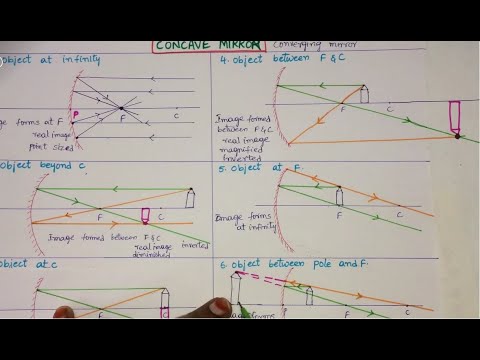 CONCAVE MIRROR
Converging mirror
Object at infinity
P
F
C
ge forms at F
real image
point sized
4. Object between F & C
F
C
Image formed
between F & C
real image
magnified
inverted
Object beyond C
F
C
Image formed between F & C
real image inverted
diminished
5. Object at F.
F
C
Image forms
at infinity
Object at C
F
C
6. Object between Pole and F.
P
F
C
forms